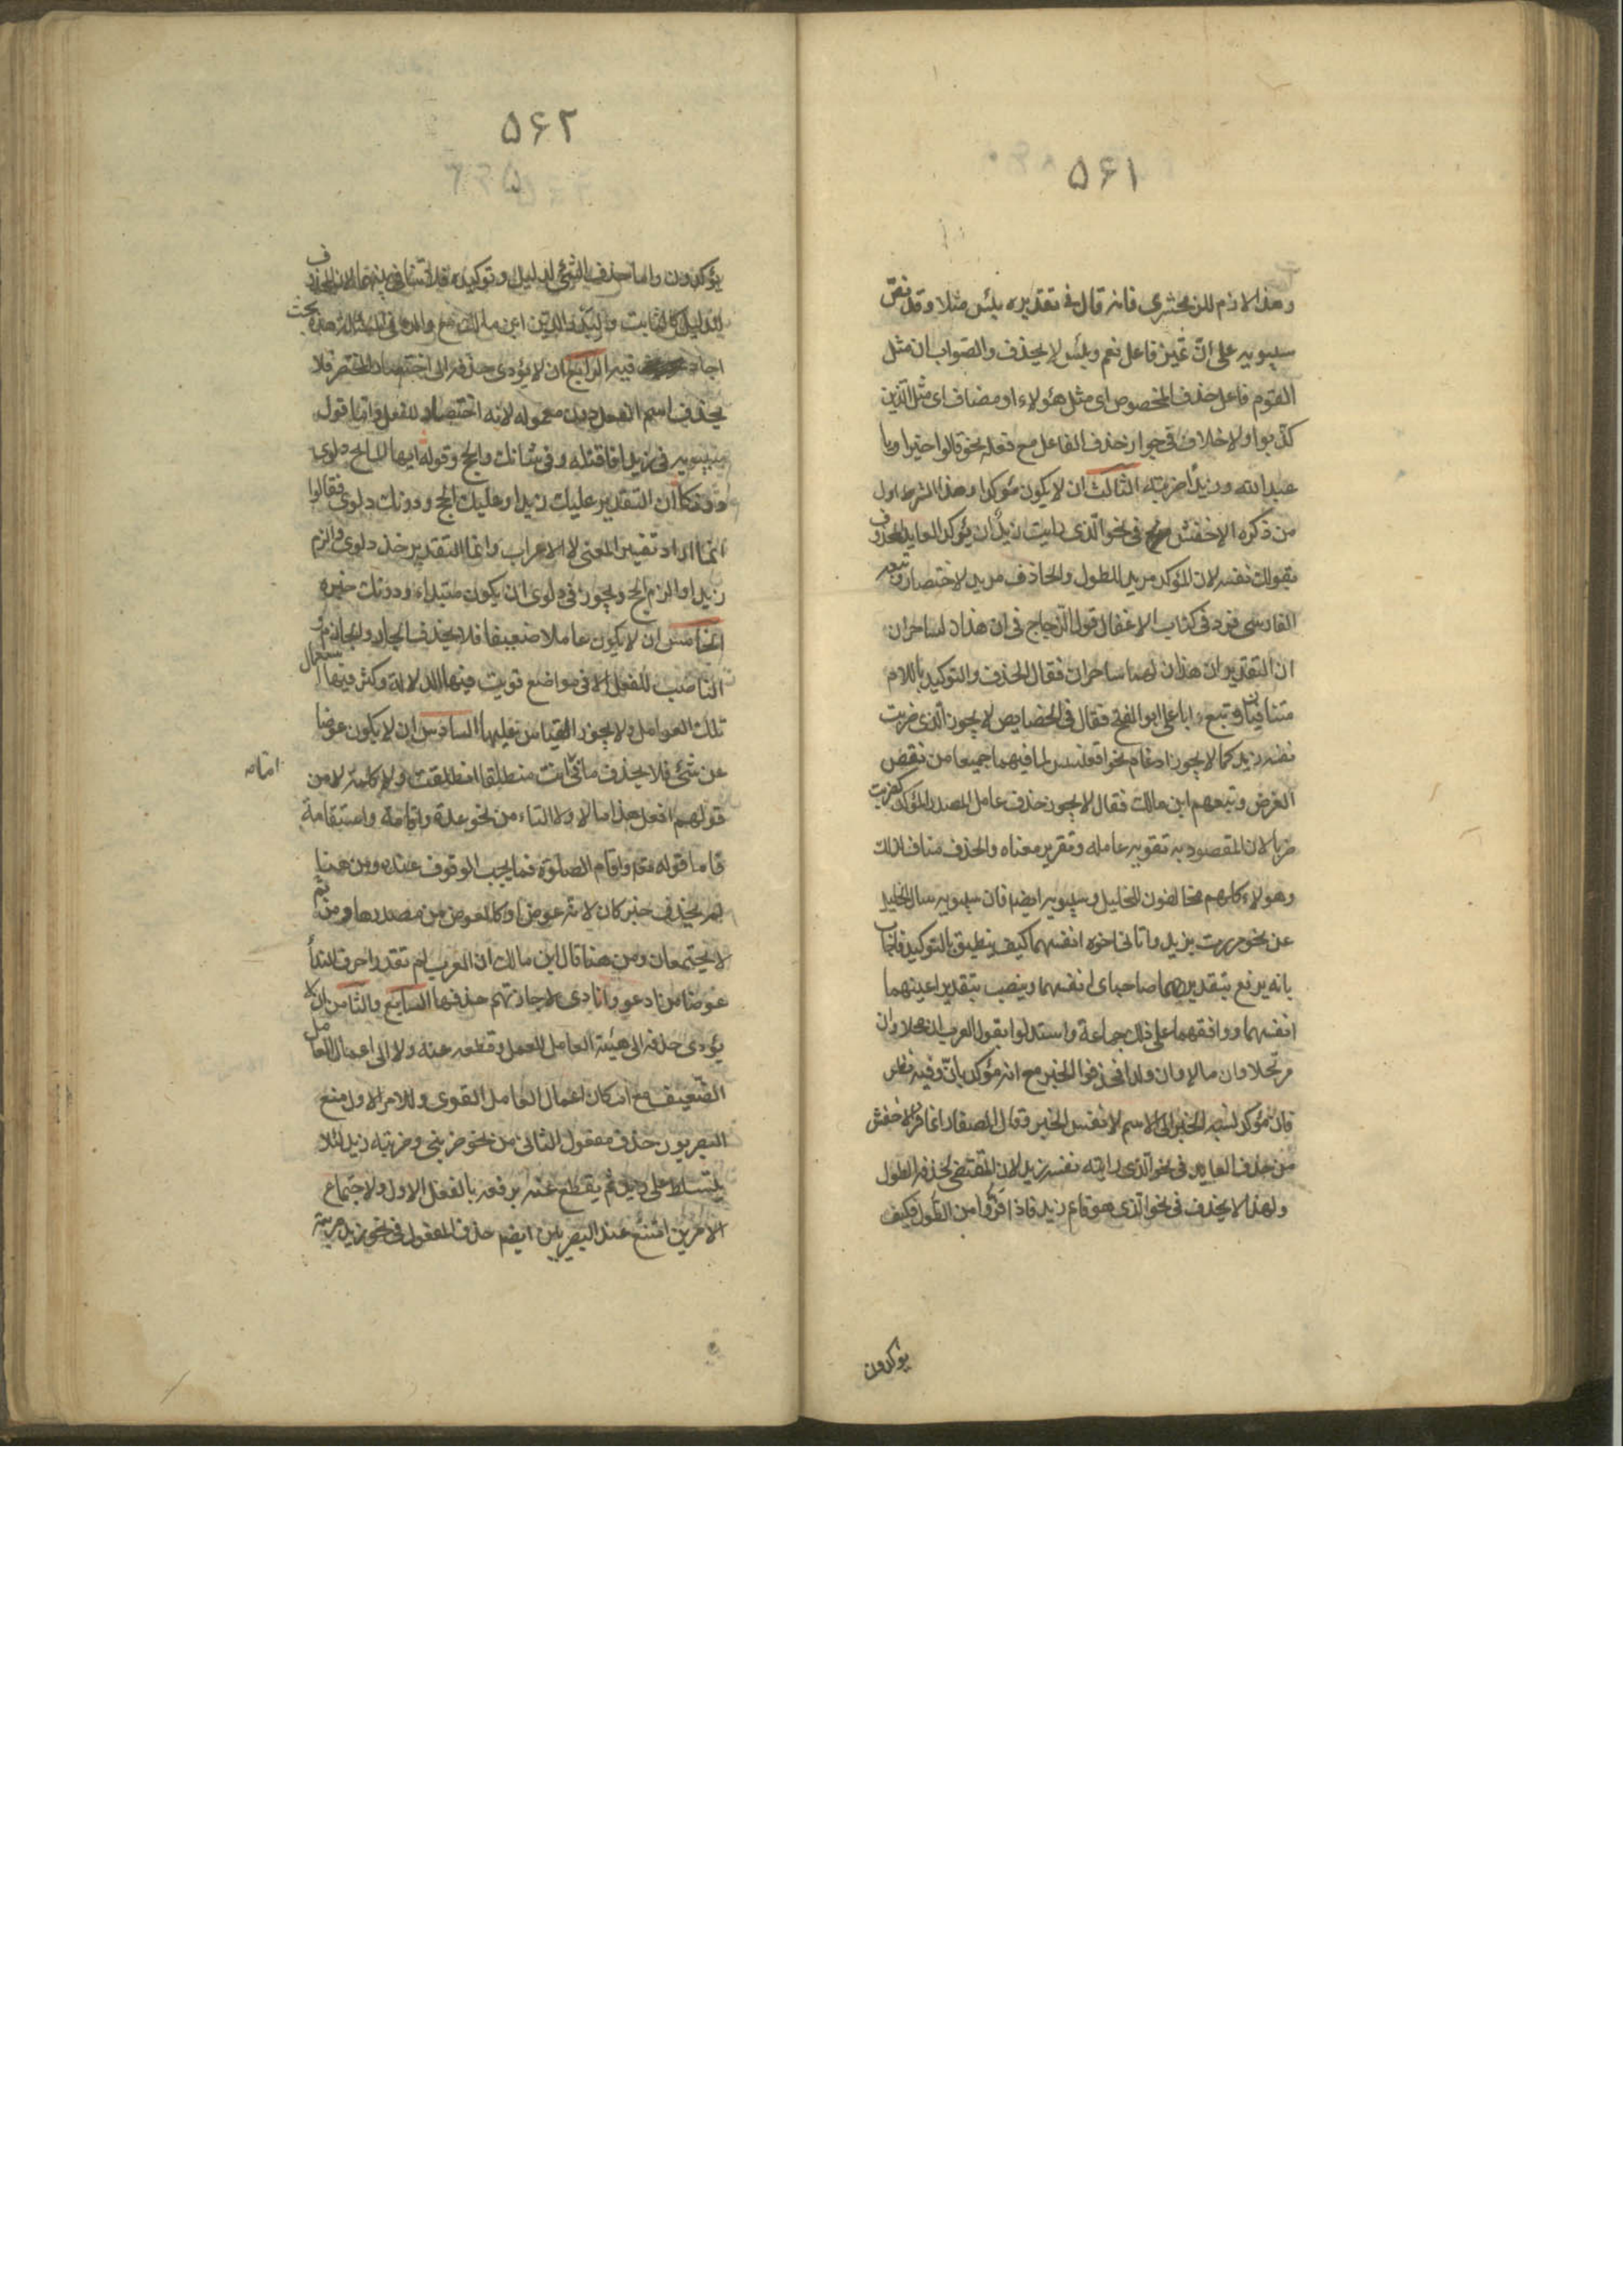 ۵۶۱
وهذا لازم للزمخشری فانه قال فی تقدیره بئس مثلا وقد نص
سیبویه علی ان تمیز فاعل نعم وبئس لا یحذف والصواب ان مثل
القوم فاعل حذف المخصوص ای مثل هؤلاء او مضاف ای مثل الذین
کذبوا ولا خلاف فی جواز حذف الفاعل مع فعله نحو قالوا خیرا ویا
عبد الله وزیدا ضربته الثالث ان لا یکون مؤکدا وهذا الشرط اول
من ذکره الاخفش فی نحو الذی رایت زید ان یؤکد العاید المحذوف
بقولک نفسه لان المؤکد مرید للطول والحاذف مرید للاختصار وتبعه
الفارسی فرد فی کتاب الاغفال قول الزجاج فی ان هذان لساحران
ان التقدیر ان هذان لهما ساحران فقال الحذف والتوکید باللام
متنافیان وتبع ابا علی ابو الفتح فقال فی الخصایص لا یجوز الذی ضربت
نفسه زید کما لا یجوز ادغام نحو اقعنسس لما فیهما جمیعا من نقض
الغرض وتبعهم ابن مالک فقال لا یجوز حذف عامل المصدر المؤکد کضربت
ضربا لان المقصود به تقویه عامله وتقریر معناه والحذف مناف لذلک
وهولاء کلهم مخالفون للخلیل وسیبویه ایضا فان سیبویه سال الخلیل
عن نحو مررت بزید واتانی اخوه انفسهما کیف ینطق بالتوکید فاجاب
بانه یرفع بتقدیر هما صاحبای انفسهما وینصب بتقدیر اعینهما
انفسهما ووافقهما علی ذلک جماعة واستدلوا بقول العرب ان محلا وان
مرتحلا وان مالا وان ولدا فحذفوا الخبر مع انه مؤکد بان وفیه نظر
فان مؤکد نسبه الخبر الی الاسم لا نفس الخبر وقال الصفار انما فر الاخفش
من حذف العاید فی نحو الذی رایته نفسه زید لان المقتضی لحذفه الطول
ولهذا لا یحذف فی نحو الذی هو قام زید فاذا فروا من الطول فکیف
یوکدون
۵۶۲
یؤکدون واما حذف الشئ لدلیل وتوکیده فلا تنافی بینهما لان المحذوف
لدلیل کالثابت ولبدر الدین ابن مالک مع والده فی المسئلة بحث
اجاد فیه الرابع ان لا یؤدی حذفه الی اختصار المختصر فلا
یحذف اسم الفعل دون معموله لانه اختصار للفعل واما قول
سیبویه فی زیدا فاقتله وفی شانک والحج وقوله ایها المائح دلوی
دونکا ان التقدیر علیک زیدا وعلیک الحج ودونک دلوی فقالوا
انما اراد تفسیر المعنی لا الاعراب وانما التقدیر خذ دلوی والزم
زیدا والزم الحج ویجوز فی دلوی ان یکون مبتداء ودونک خبره
الخامس ان لا یکون عاملا ضعیفا فلا یحذف الجار والجازم و
الناصب للفعل الا فی مواضع قویت فیها الدلالة وکثر فیها استعمال
تلک العوامل ولا یجوز القیاس علیها السادس ان لا یکون عوضا
عن شئ فلا یحذف ما فی اما انت منطلقا انطلقت ولا کلمة لا من
قولهم افعل هذا اما لا ولا التاء من نحو عدة واقامة واستقامة
فاما قوله تعالی واقام الصلوة فمما یجب الوقوف عنده ومن هنا
لم یحذف خبر کان لانه عوض او کالعوض من مصدرها ومن ثم
لا یجتمعان ومن هنا قال ابن مالک ان العرب لم تقدر احرف النداء
عوضا من ادعو وانادی لاجازتهم حذفها السابع والثامن ان لا
یؤدی حذفه الی هیئة العامل للعمل وقطعه عنه ولا الی اعمال العامل
الضعیف مع امکان اعمال العامل القوی وللامر الاول منع
البصریون حذف مفعول الثانی من نحو ضربنی وضربته زید لئلا
یتسلط علی زید ثم یقطع عنه برفعه بالفعل الاول ولاجتماع
الامرین امتنع عند البصریین ایضا حذف المفعول فی نحو زید ضربته